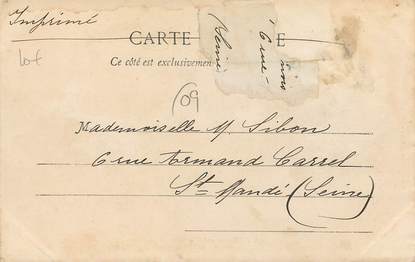 Imprimé
CARTE E
Lot
Ce côté est exclusivemen
6 rue
(Seine
09
Mademoiselle M. Sibon
6 rue Armand Carrel
St Mandé (Seine)